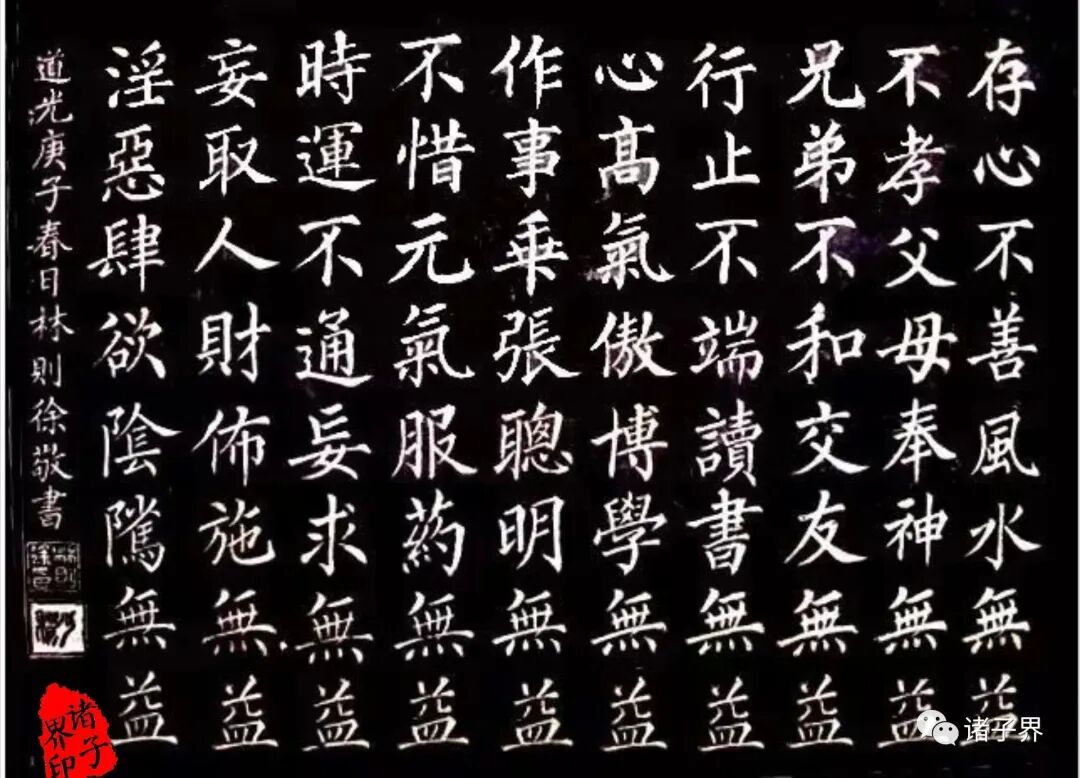 存心不善風水無益
不孝父母奉神無益
兄弟不和交友無益
行止不端讀書無益
心髙氣傲博學無益
作事乖張聰明無益
不惜元氣服葯無益
時運不通妄求無益
妄取人財佈施無益
淫惡肆欲陰隲無益
道光庚子春日林則徐敬書
诸子界印
诸子界